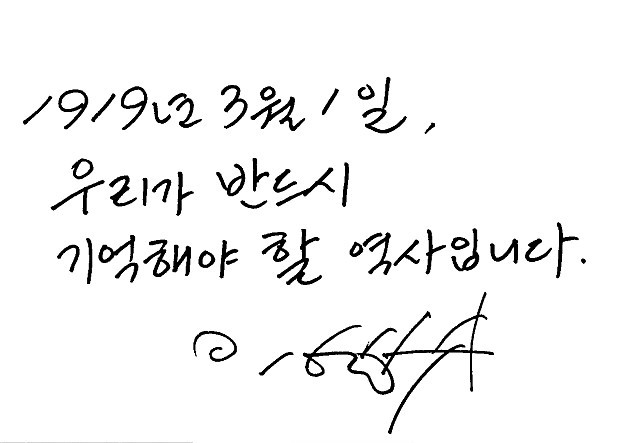 1919년 3월 1일,
우리가 반드시
기억해야 할 역사입니다.